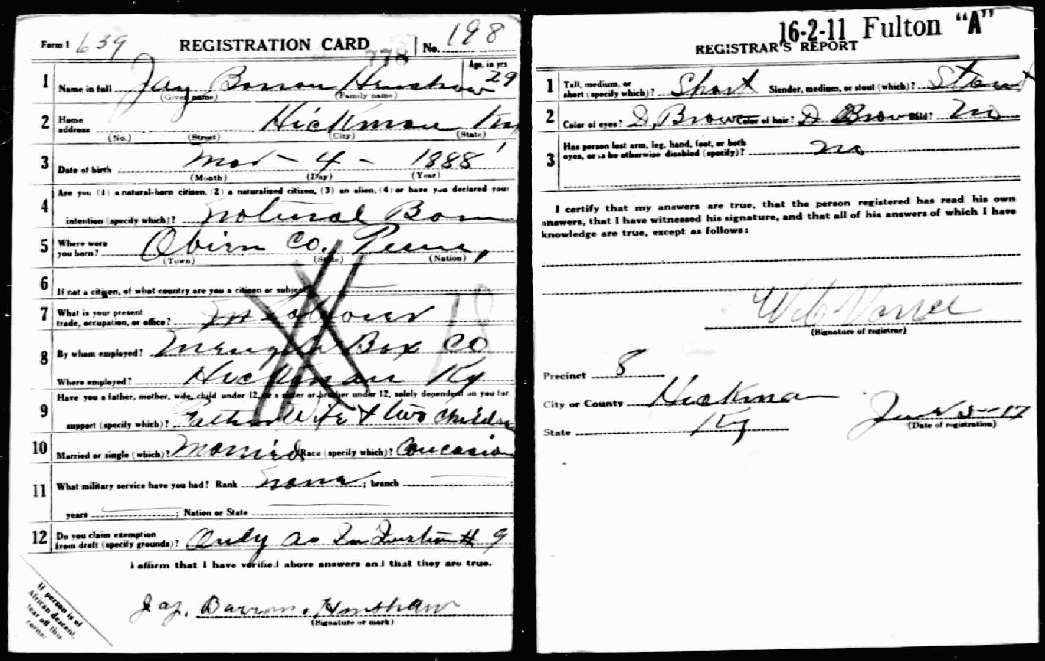 Form 1 639 REGISTRATION CARD No. 198
Age, in yrs
1 Name in full Jay Barron Henshaw 29
(Given name) (Family name)
2 Home address Hickman Ky
(No.) (Street) (City) (State)
3 Date of birth Mar - 4 - 1888
(Month) (Day) (Year)
4 Are you (1) a natural-born citizen, (2) a naturalized citizen, (3) an alien, (4) or have you declared your
intention (specify which)? Natural Born
5 Where were you born? Obion Co. Tenn,
(Town) (State) (Nation)
6 If not a citizen, of what country are you a citizen or subject?
7 What is your present trade, occupation, or office?
8 By whom employed? Mengel Box Co
Where employed? Hickman Ky
9 Have you a father, mother, wife, child under 12, or a sister or brother under 12, solely dependent on you for
support (specify which)? Father Wife & two children
10 Married or single (which)? Married Race (specify which)? Caucasian
11 What military service have you had? Rank None ; branch
years ; Nation or State
12 Do you claim exemption from draft (specify grounds)? Only as In Question # 9
I affirm that I have verified above answers and that they are true.
Jay. Barron. Henshaw
(Signature or mark)
If person is of
African descent,
tear off this
corner.
16-2-11 Fulton "A"
REGISTRAR'S REPORT
1 Tall, medium, or short (specify which)? Short Slender, medium, or stout (which)? Stout
2 Color of eyes? D Brown Color of hair? D Brown Bald? No
3 Has person lost arm, leg, hand, foot, or both eyes, or is he otherwise disabled (specify)? No
I certify that my answers are true, that the person registered has read his own
answers, that I have witnessed his signature, and that all of his answers of which I have
knowledge are true, except as follows:
(Signature of registrar)
Precinct 8
City or County Hickman
State Ky
June 5-17
(Date of registration)